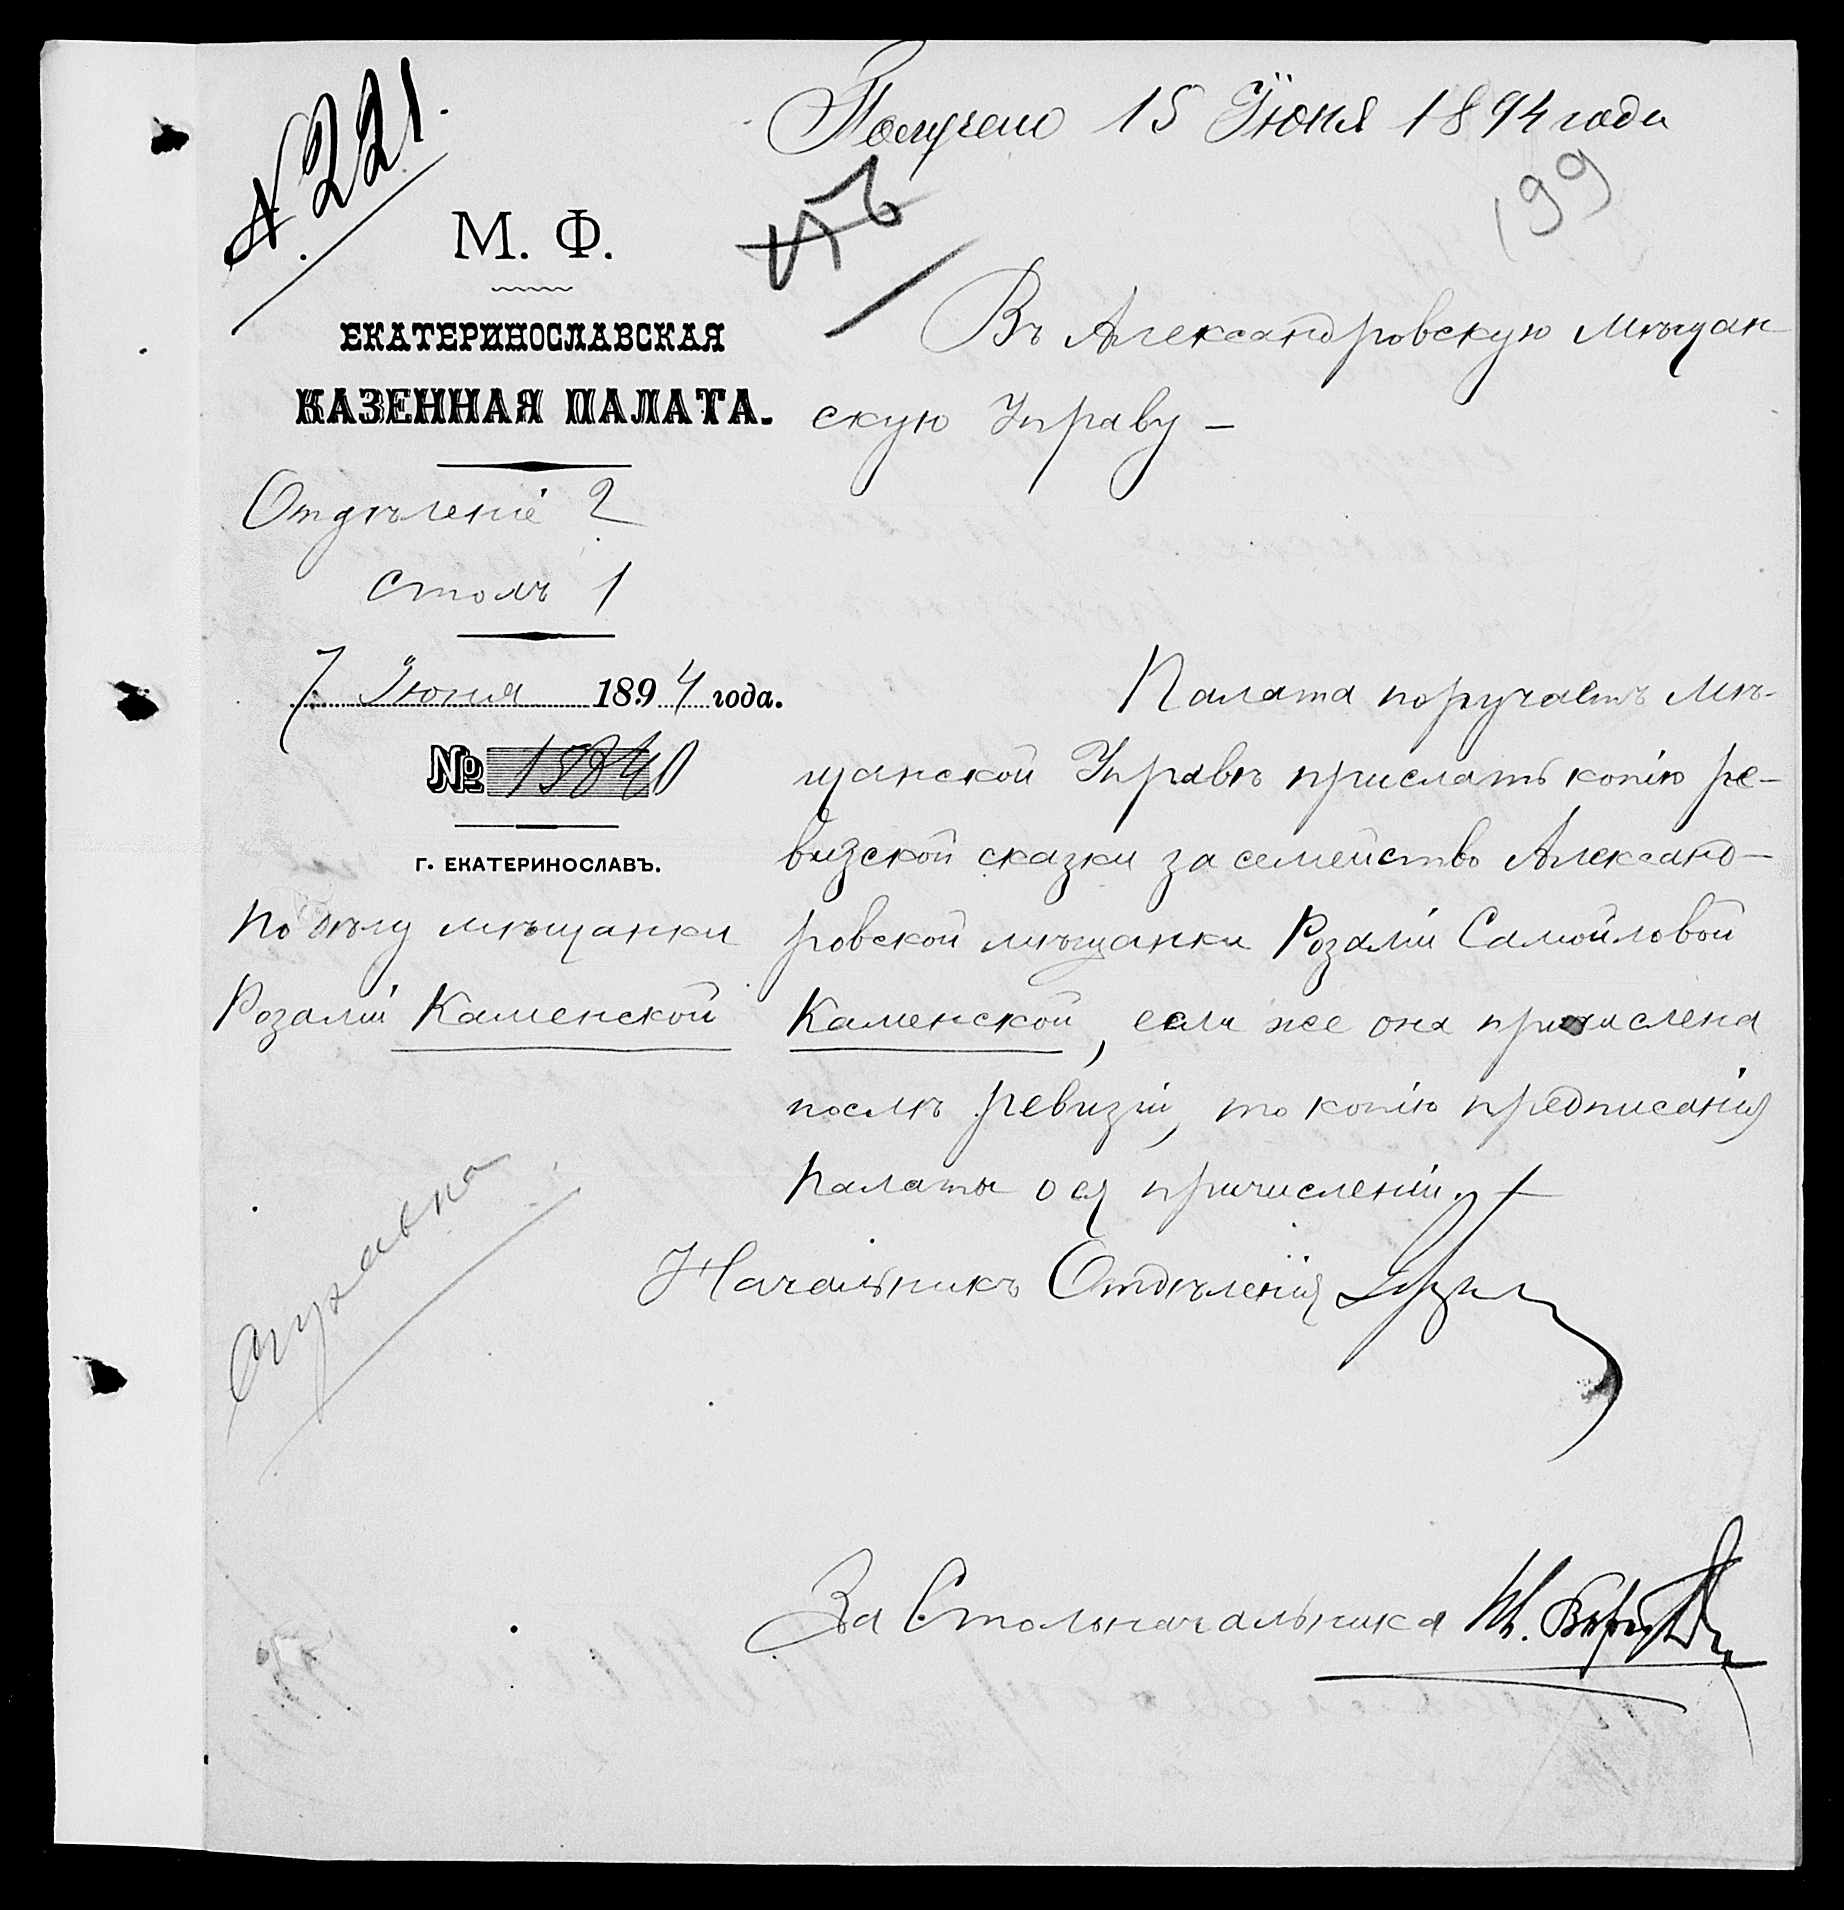 № 221.
Получено 15 Іюня 1894 года
199
М. Ф.
ЕКАТЕРИНОСЛАВСКАЯ
КАЗЕННАЯ ПАЛАТА.
Отдѣленіе 2
столъ 1
7 Іюня 1894 года.
№ 15840
Г. ЕКАТЕРИНОСЛАВЪ.
По дѣлу мѣщанки
Розаліи Каменской
Въ Александровскую мѣщан
скую Управу –
Палата поручаетъ Мѣ-
щанской Управѣ прислать копію ре-
визской сказки за семейство Александ-
ровской мѣщанки Розаліи Самойловой
Каменской, если же она причислена
послѣ ревизіи, то копію предписанія
Палаты о ея причисленіи.
Начальникъ Отдѣленія
За Столоначальника